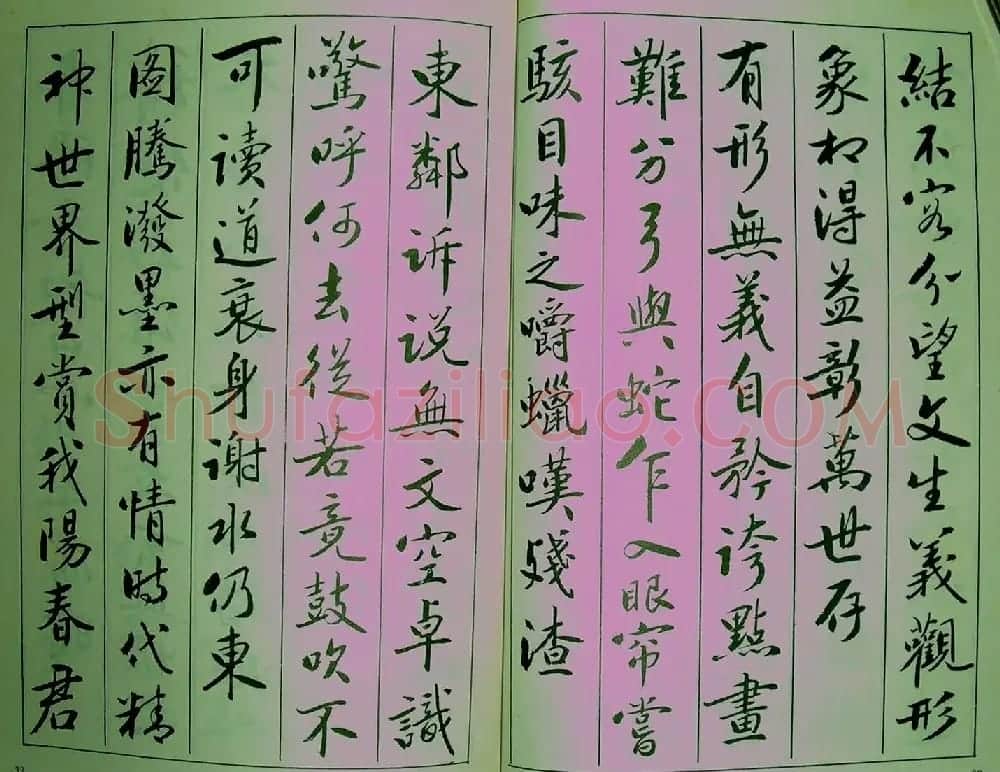 結不容分望文生義觀形
象相得益彰萬世存
有形無義自矜誇點畫
難分弓與蛇乍入眼帘嘗
駭目味之嚼蠟嘆殘渣
東鄰訴说無文空卓識
驚呼何去從若竟鼓吹不
可读道衰身谢水仍東
图騰潑墨亦有情時代精
神世界型賞我陽春君
Shufaziliao.COM